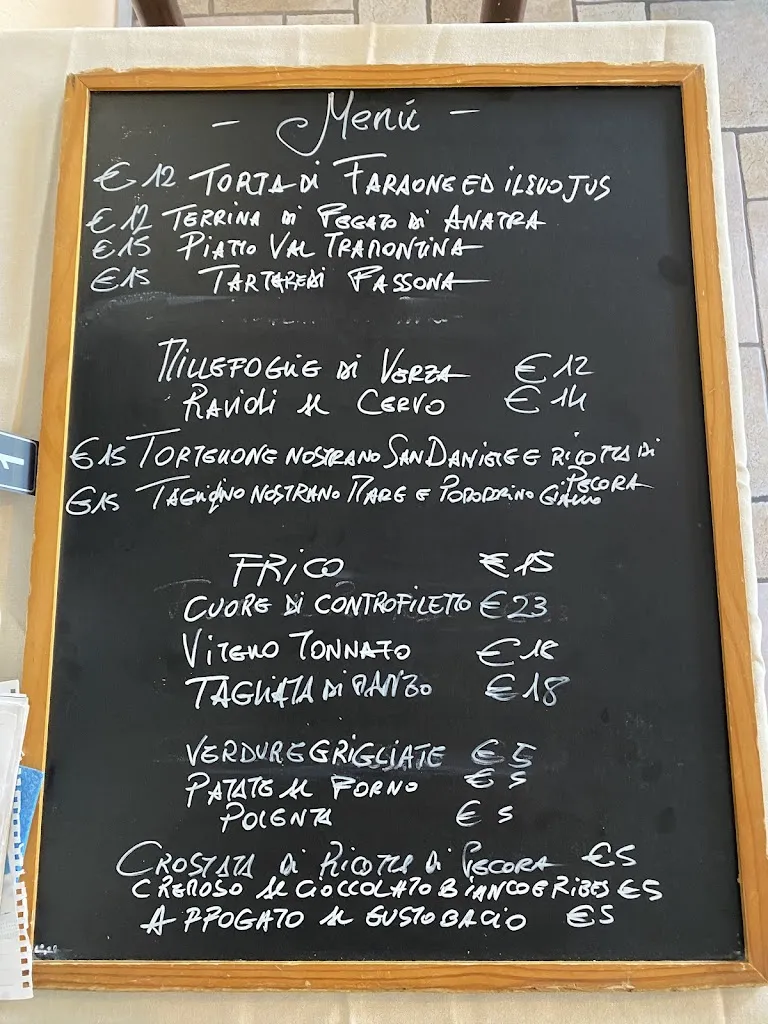 - Menú -
€ 12 TORTA DI FARAONE ED IL SUO JUS
€ 12 TERRINA DI FEGATO DI ANATRA
€ 15 PIATTO VAL TRAMONTINA
€ 15 TARTARE DI FASSONA
MILLEFOGLIE DI VERZA € 12
RAVIOLI AL CERVO € 14
€ 15 TORTELLONE NOSTRANO SAN DANIELE E RICOTTA DI PECORA
€ 15 TAGLIOLINO NOSTRANO MARE E POMODORINO GIALLO
FRICO € 15
CUORE DI CONTROFILETTO € 23
VITELLO TONNATO € 18
TAGLIATA DI MANZO € 18
VERDURE GRIGLIATE € 5
PATATE AL FORNO € 5
POLENTA € 5
CROSTATA DI RICOTTA DI PECORA € 5
CREMOSO AL CIOCCOLATO BIANCO E RIBES € 5
AFFOGATO AL GUSTO BACIO € 5
1